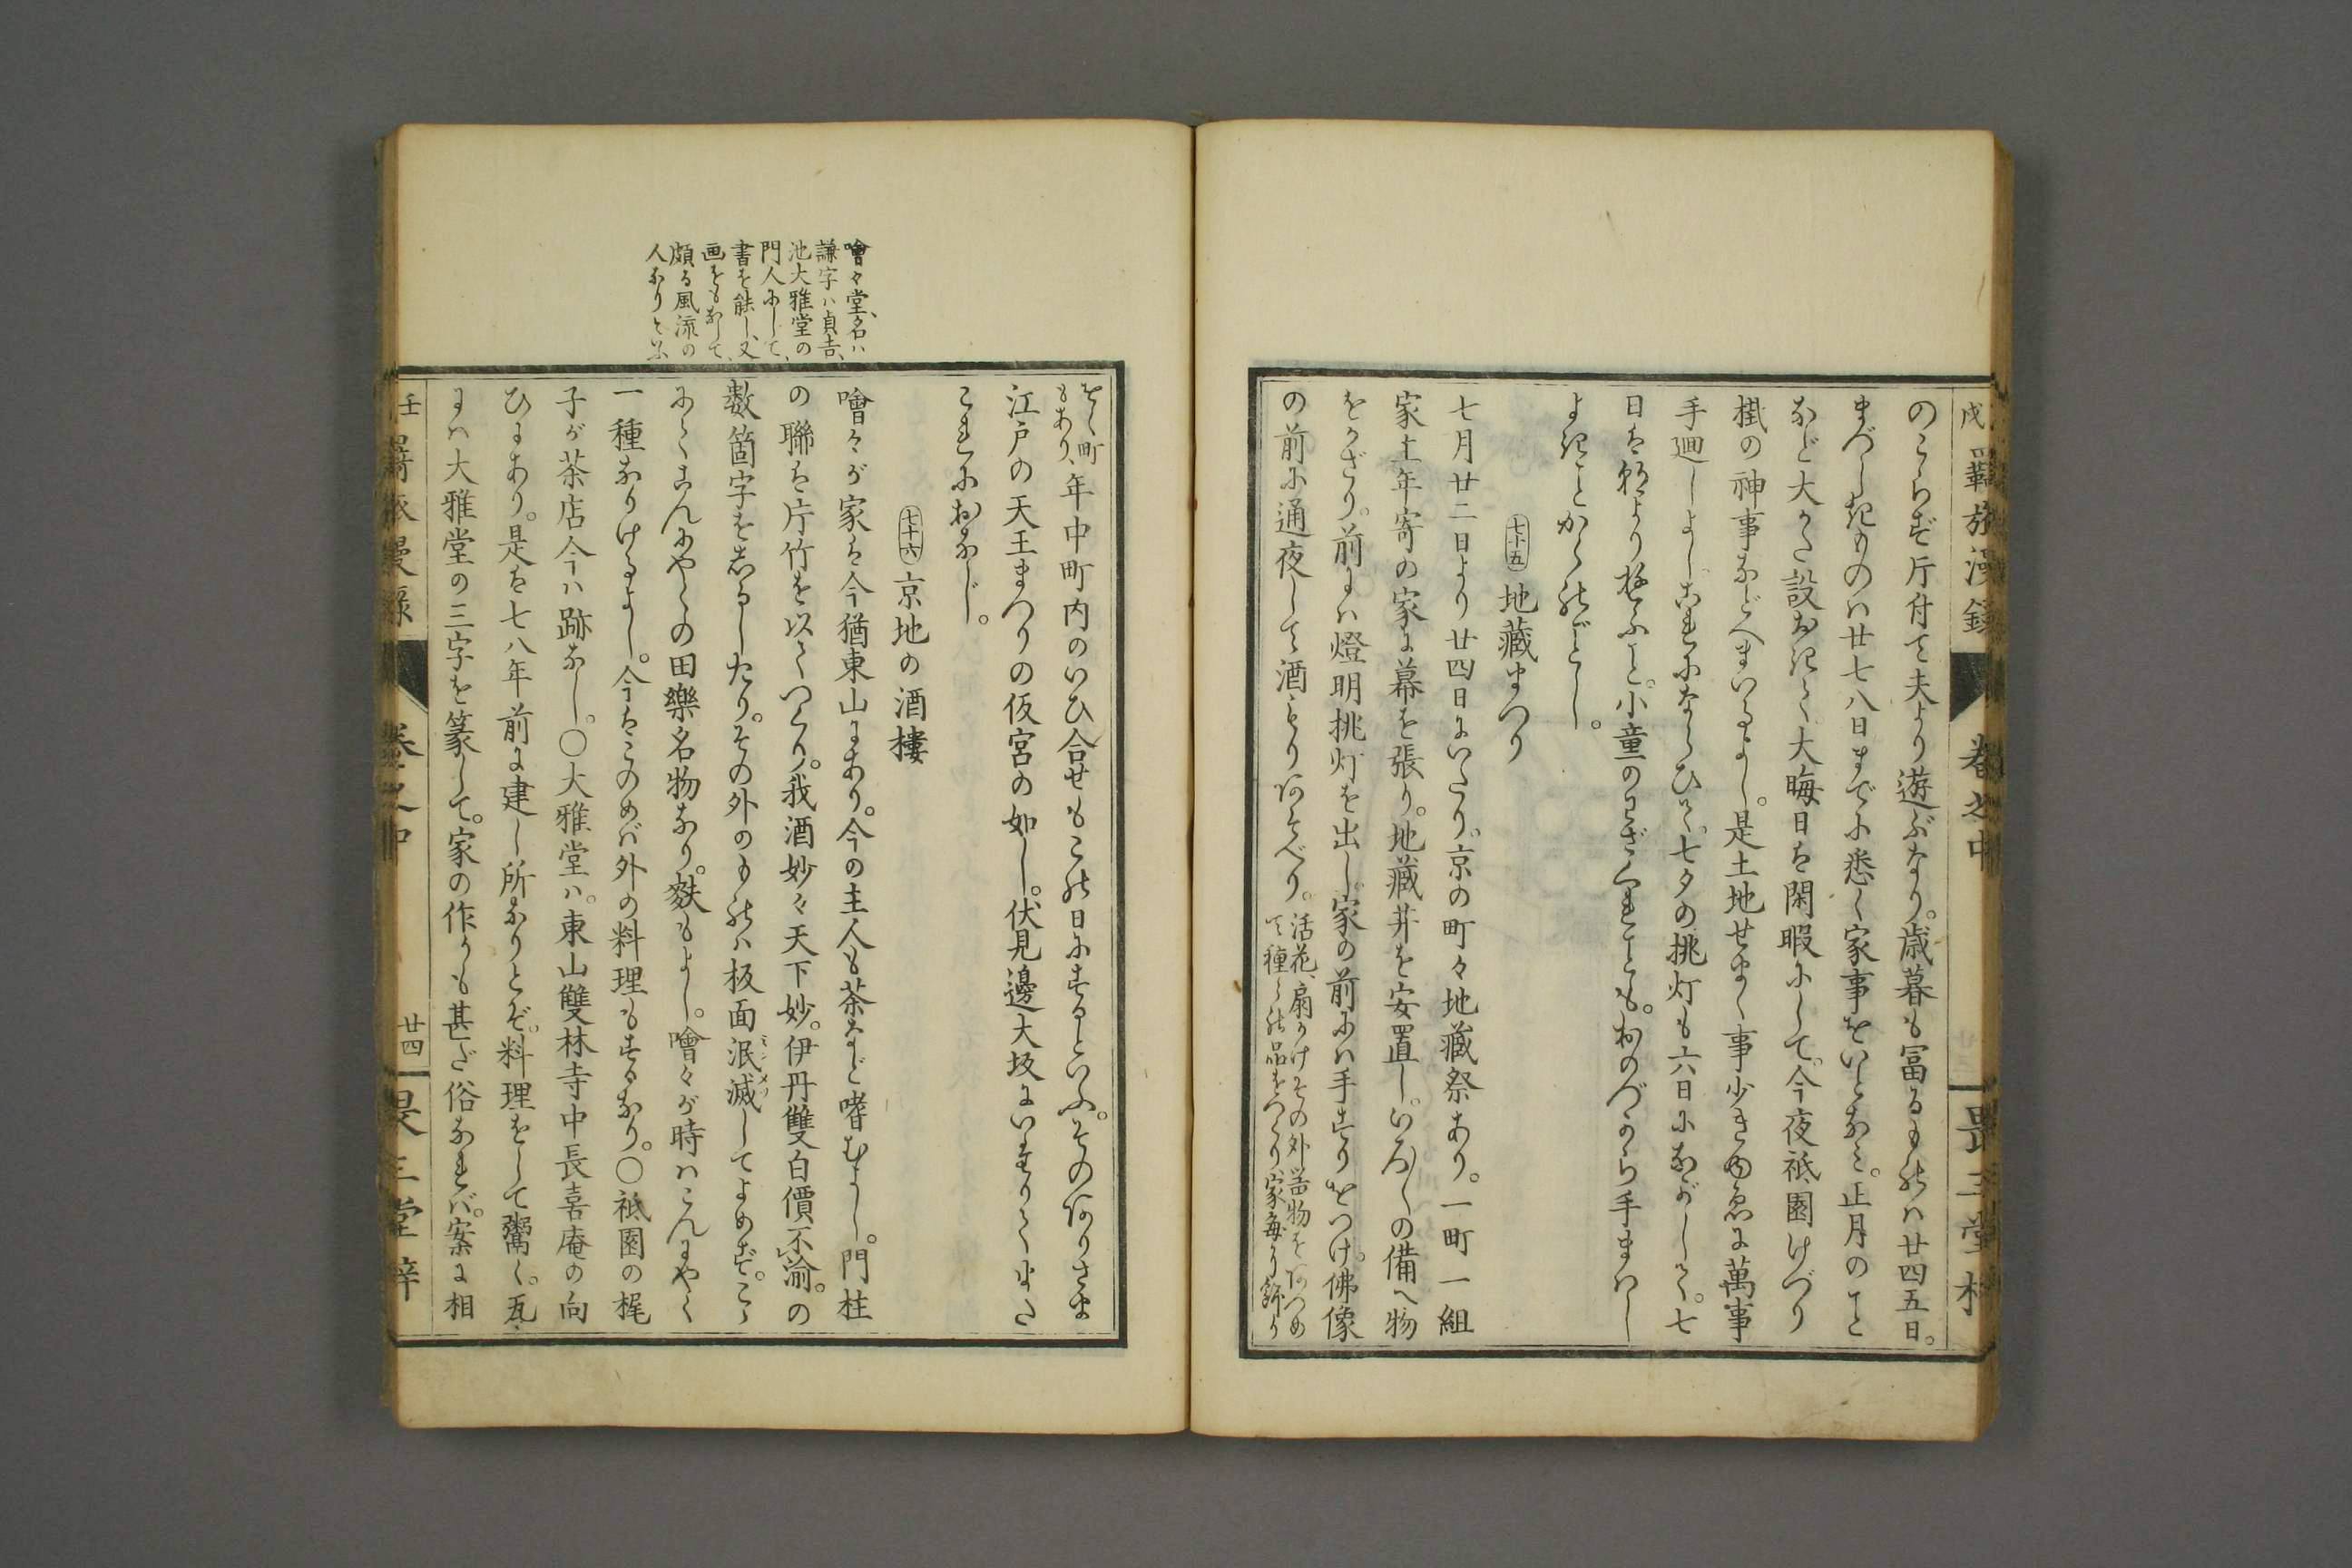 戌 羇旅漫録 巻之中 畏三堂梓
のこらず片付て夫より遊ぶなり。歳暮も冨るものハ廿四五日。
まづしきものハ廿七八日までに悉く家事をいとなミ。正月のこと
など大かた設おきて、大晦日は閑暇にして。今夜祇園けづり
掛の神事などへまいるよし。是土地せまく事少きゆゑに萬事
手廻しよし。これにならひて、七夕の挑灯も六日にながして。七
日は朝より遊ふこと。小童のわざくれまでも。おのづから手まハし
よきことかくのごとし。
七十五 地藏まつり
七月廿二日より廿四日にいたり。京の町々地藏祭あり。一町一組
家主年寄の家に幕を張り。地藏井を安置し。いろ〳〵の備へ物
をかざり。前にハ燈明挑灯を出し。家の前にハ手すりをつけ。佛像
の前に通夜して酒もりあそべり。
活花、扇かけその外器物をあつめ
て種々の品をつくり家毎に飾り
をく町
もあり、
年中町内のいひ合せもこの日にするといふ。そのありさま
江戸の天王まつりの仮宮の如し。伏見邊大坂にいたりてまた
これにおなじ。
七十六 京地の酒樓
噲々が家は今猶東山にあり。今の主人も茶など嗜むよし。門柱
の聯は片竹を以てつくり。我酒妙々天下妙。伊丹雙白價不渝。の
數箇字をしるしたり。その外のものハ板面泯滅してよめず。こゝ
にてこんにやくの田樂名物なり。麩もよし。噲々が時ハこんにやく
一種なりけるよし。今はこのめバ外の料理もするなり。○祇園の梶
子が茶店今ハ跡なし。○大雅堂ハ。東山雙林寺中長喜庵の向
ひにあり。是は七八年前に建し所なりとぞ。料理をして鬻く。瓦
にハ大雅堂の三字を篆して。家の作りも甚だ俗なれバ。案に相
噲々堂、名ハ
謙字ハ貞吉、
池大雅堂の
門人にして、
書を能し、又
画をもなして、
頗る風流の
人なりといふ
壬 羇旅漫録 巻之中 廿四 畏三堂梓